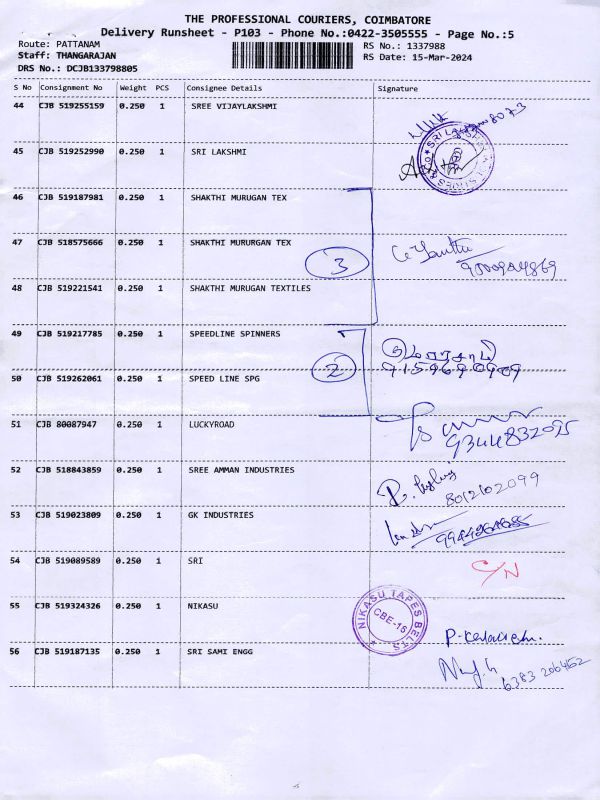 THE PROFESSIONAL COURIERS, COIMBATORE
Delivery Runsheet - P103 - Phone No.:0422-3505555 - Page No.:5
Route: PATTANAM RS No.: 1337988
Staff: THANGARAJAN RS Date: 15-Mar-2024
DRS No.: DCJB133798805
S No Consignment No Weight PCS Consignee Details Signature
44 CJB 519255159 0.250 1 SREE VIJAYLAKSHMI
45 CJB 519252990 0.250 1 SRI LAKSHMI
46 CJB 519187981 0.250 1 SHAKTHI MURUGAN TEX
47 CJB 518575666 0.250 1 SHAKTHI MURURGAN TEX
3
48 CJB 519221541 0.250 1 SHAKTHI MURUGAN TEXTILES
49 CJB 519217785 0.250 1 SPEEDLINE SPINNERS
2
50 CJB 519262061 0.250 1 SPEED LINE SPG
51 CJB 80087947 0.250 1 LUCKYROAD
9344832095
52 CJB 518843859 0.250 1 SREE AMMAN INDUSTRIES
8012102099
53 CJB 519023809 0.250 1 GK INDUSTRIES
54 CJB 519089589 0.250 1 SRI
C/N
55 CJB 519324326 0.250 1 NIKASU
NIKASU TAPES BELTS
CBE-16
56 CJB 519187135 0.250 1 SRI SAMI ENGG
6383 206452